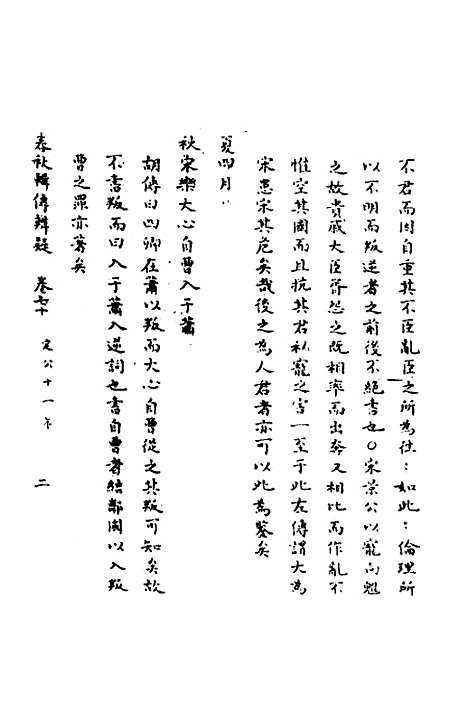 不君而因自重其不臣亂臣之所為往：如此：倫理所
以不明而叛逆者之前後不絕書也〇宋景公以寵向魋
之故貴戚大臣胥怨之既相率而出奔又相比而作亂不
惟空其國而且抗其君私寵之害一至于此左傳謂大為
宋患宋其危矣哉後之為人君者亦可以此為鑒矣
夏四月
秋宋樂大心自曹入于蕭
胡傳曰四卿在蕭以叛而大心自曹從之其叛可知矣故
不書叛而曰入于蕭入逆詞也書自曹者結鄰國以入叛
曹之罪亦著矣
春秋輯傳辨疑 卷七十 定公十一年 二